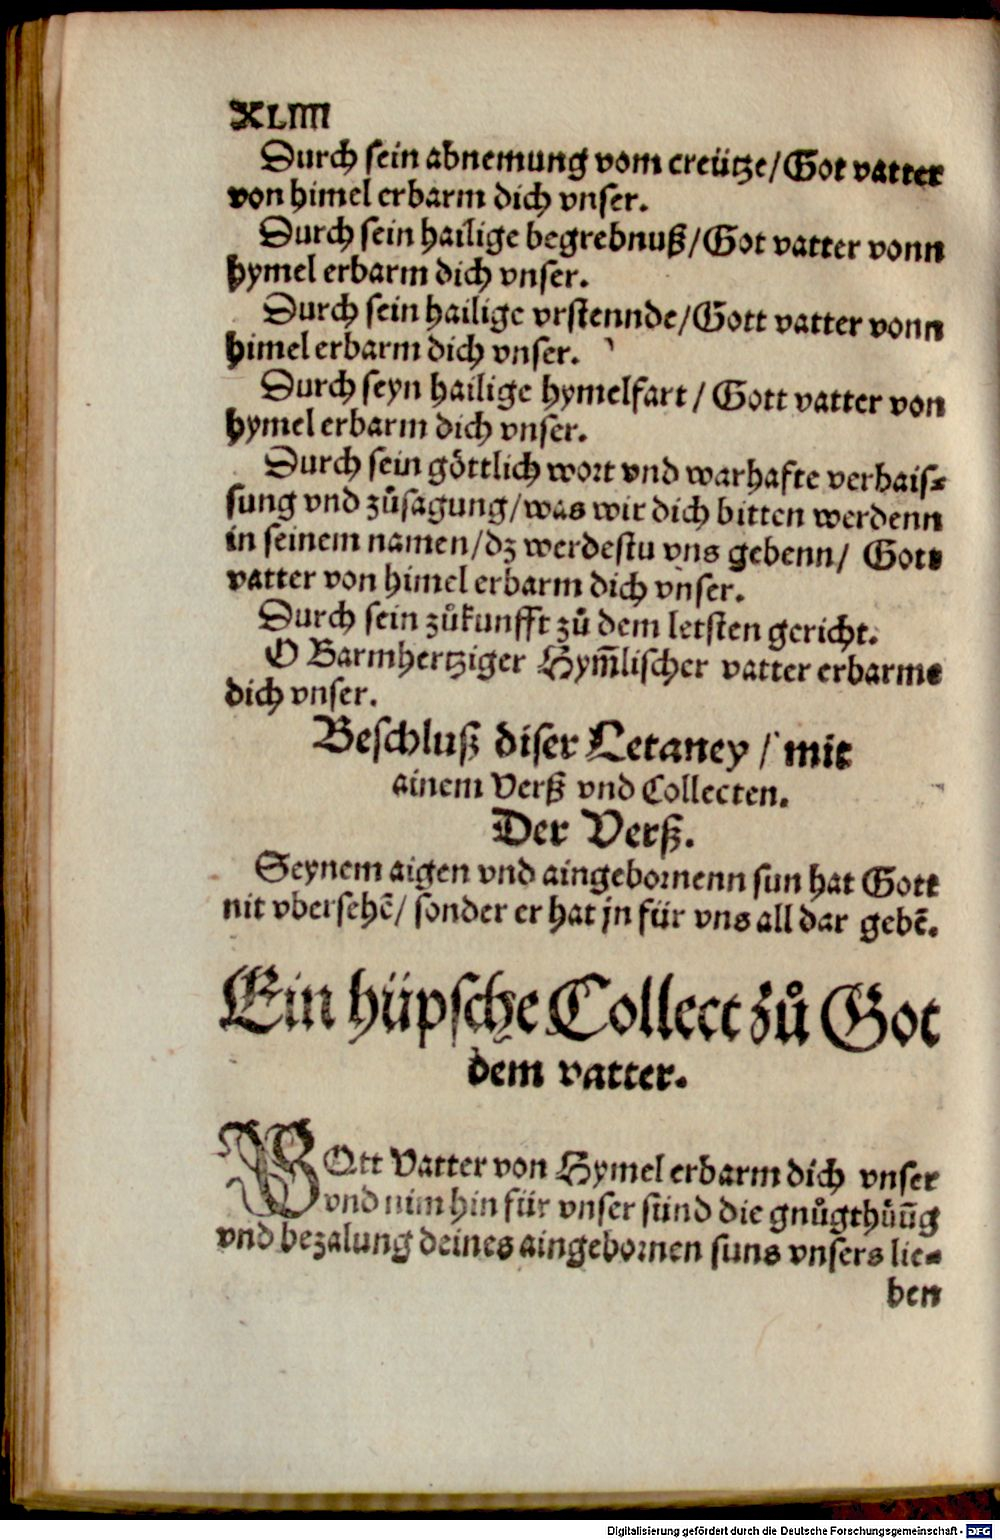 XLIIII
Durch sein abnemung vom creütze/Got vatter
von himel erbarm dich vnser.
Durch sein hailige begrebnuß/Got vatter vonn
hymel erbarm dich vnser.
Durch sein hailige vrstennde/Gott vatter vonn
himel erbarm dich vnser.
Durch seyn hailige hymelfart / Gott vatter von
hymel erbarm dich vnser.
Durch sein göttlich wort vnd warhafte verhais⸗
sung vnd zůsagung/was wir dich bitten werdenn
in seinem namen/dz werdestu vns gebenn/ Gott
vatter von himel erbarm dich vnser.
Durch sein zůkunfft zů dem letsten gericht.
O Barmhertziger Hym̃lischer vatter erbarme
dich vnser.
Beschluß diser Letaney / mit
ainem Verß vnd Collecten.
Der Verß.
Seynem aigen vnd aingebornenn sun hat Gott
nit vbersehẽ/ sonder er hat jn für vns all dar gebẽ.
Ein hüpsche Collect zů Got
dem vatter.
GOtt Vatter von Hymel erbarm dich vnser
vnd nim hin für vnser sünd die gnůgthůũg
vnd bezalung deines aingebornen suns vnsers lie⸗
ben
Digitalisierung gefördert durch die Deutsche Forschungsgemeinschaft - DFG